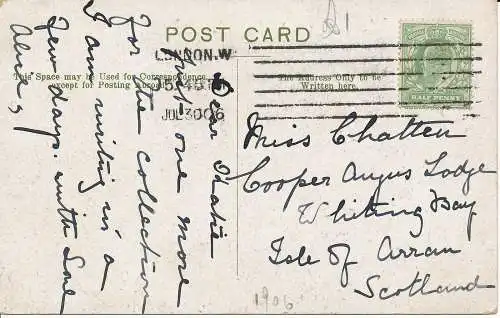 POST CARD
A1
LONDON.W
5.45 PM
JUL 30 06
This Space may be Used for Correspondence
except for Posting Abroad
The Address Only to be
Written here.
HALF PENNY
Dear Katie
one more
For the collection
I am writing in a
few days. with love
Alice,
Miss Chatten
Cooper Angus Lodge
Whiting Bay
Isle of Arran
Scotland
1906